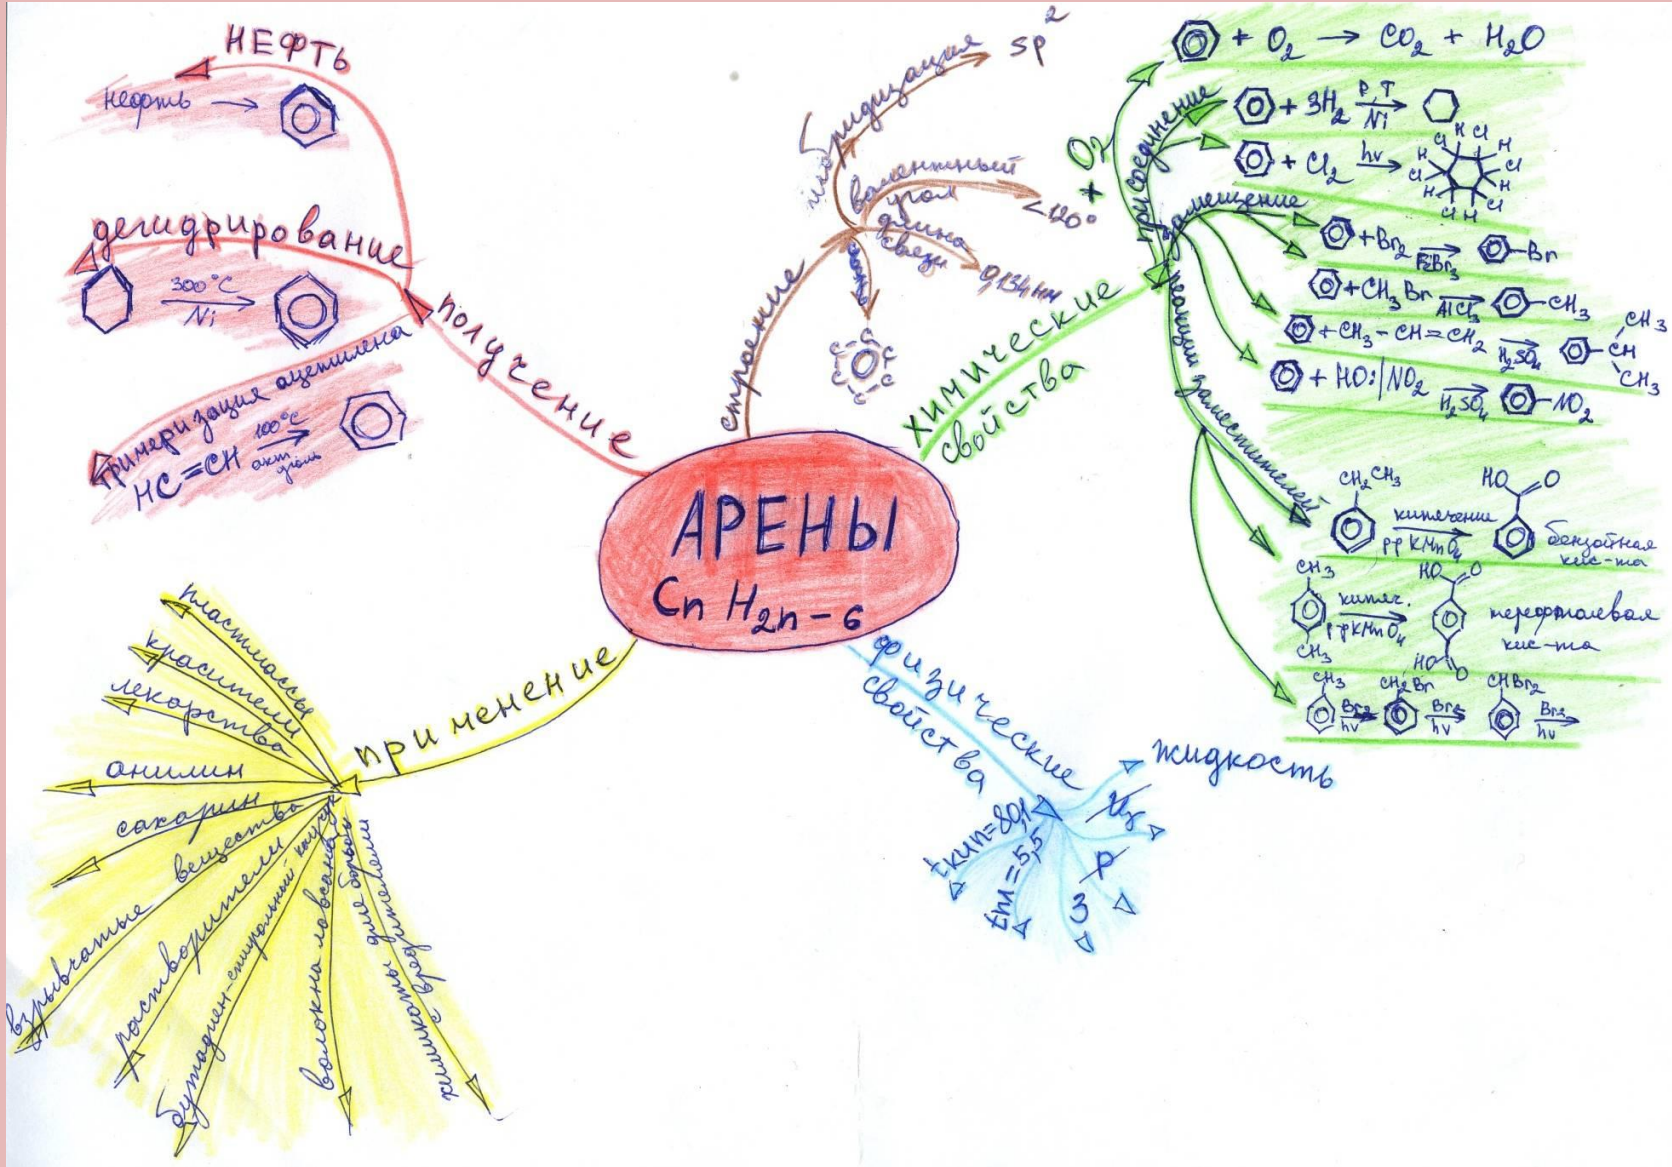 АРЕНЫ
CnH2n-6
получение
НЕФТЬ
нефть →
дегидрирование
300°C
Ni
тримеризация ацетилена
HC=CH 100°C →
акт
уголь
строение
гибридизация
sp2
валентный
угол
<120°
длина
связи
0,134 нм
C
C
C
C
C
C
химические
свойства
+ O2
+ O2 → CO2 + H2O
присоединение
+ 3H2 P,T →
Ni
+ Cl2 hν →
H Cl
Cl H
H Cl
Cl H
H Cl
Cl H
замещение
+Br2 → -Br
FeBr3
+CH3Br → -CH3
AlCl3
+CH3-CH=CH2 → -CH
H2SO4
CH3
CH3
+ HO:|NO2 → -NO2
H2SO4
реакции заместителей
CH2CH3
кипячение
р-р KMnO4
HO O
бензойная
кис-та
CH3
кипяч.
р-р KMnO4
CH3
HO O
HO O
терефталевая
кис-та
CH3 Br2 → CH2Br Br2 → CHBr2 Br2 →
hν hν hν
физические
свойства
жидкость
р
З
tпл=5,5
tкип=80,1
применение
пластмассы
красители
лекарства
анилин
сахарин
взрывчатые вещества
растворители
бутадиен-стирольный каучук
волокна лавсана
химикаты для борьбы
с вредителями